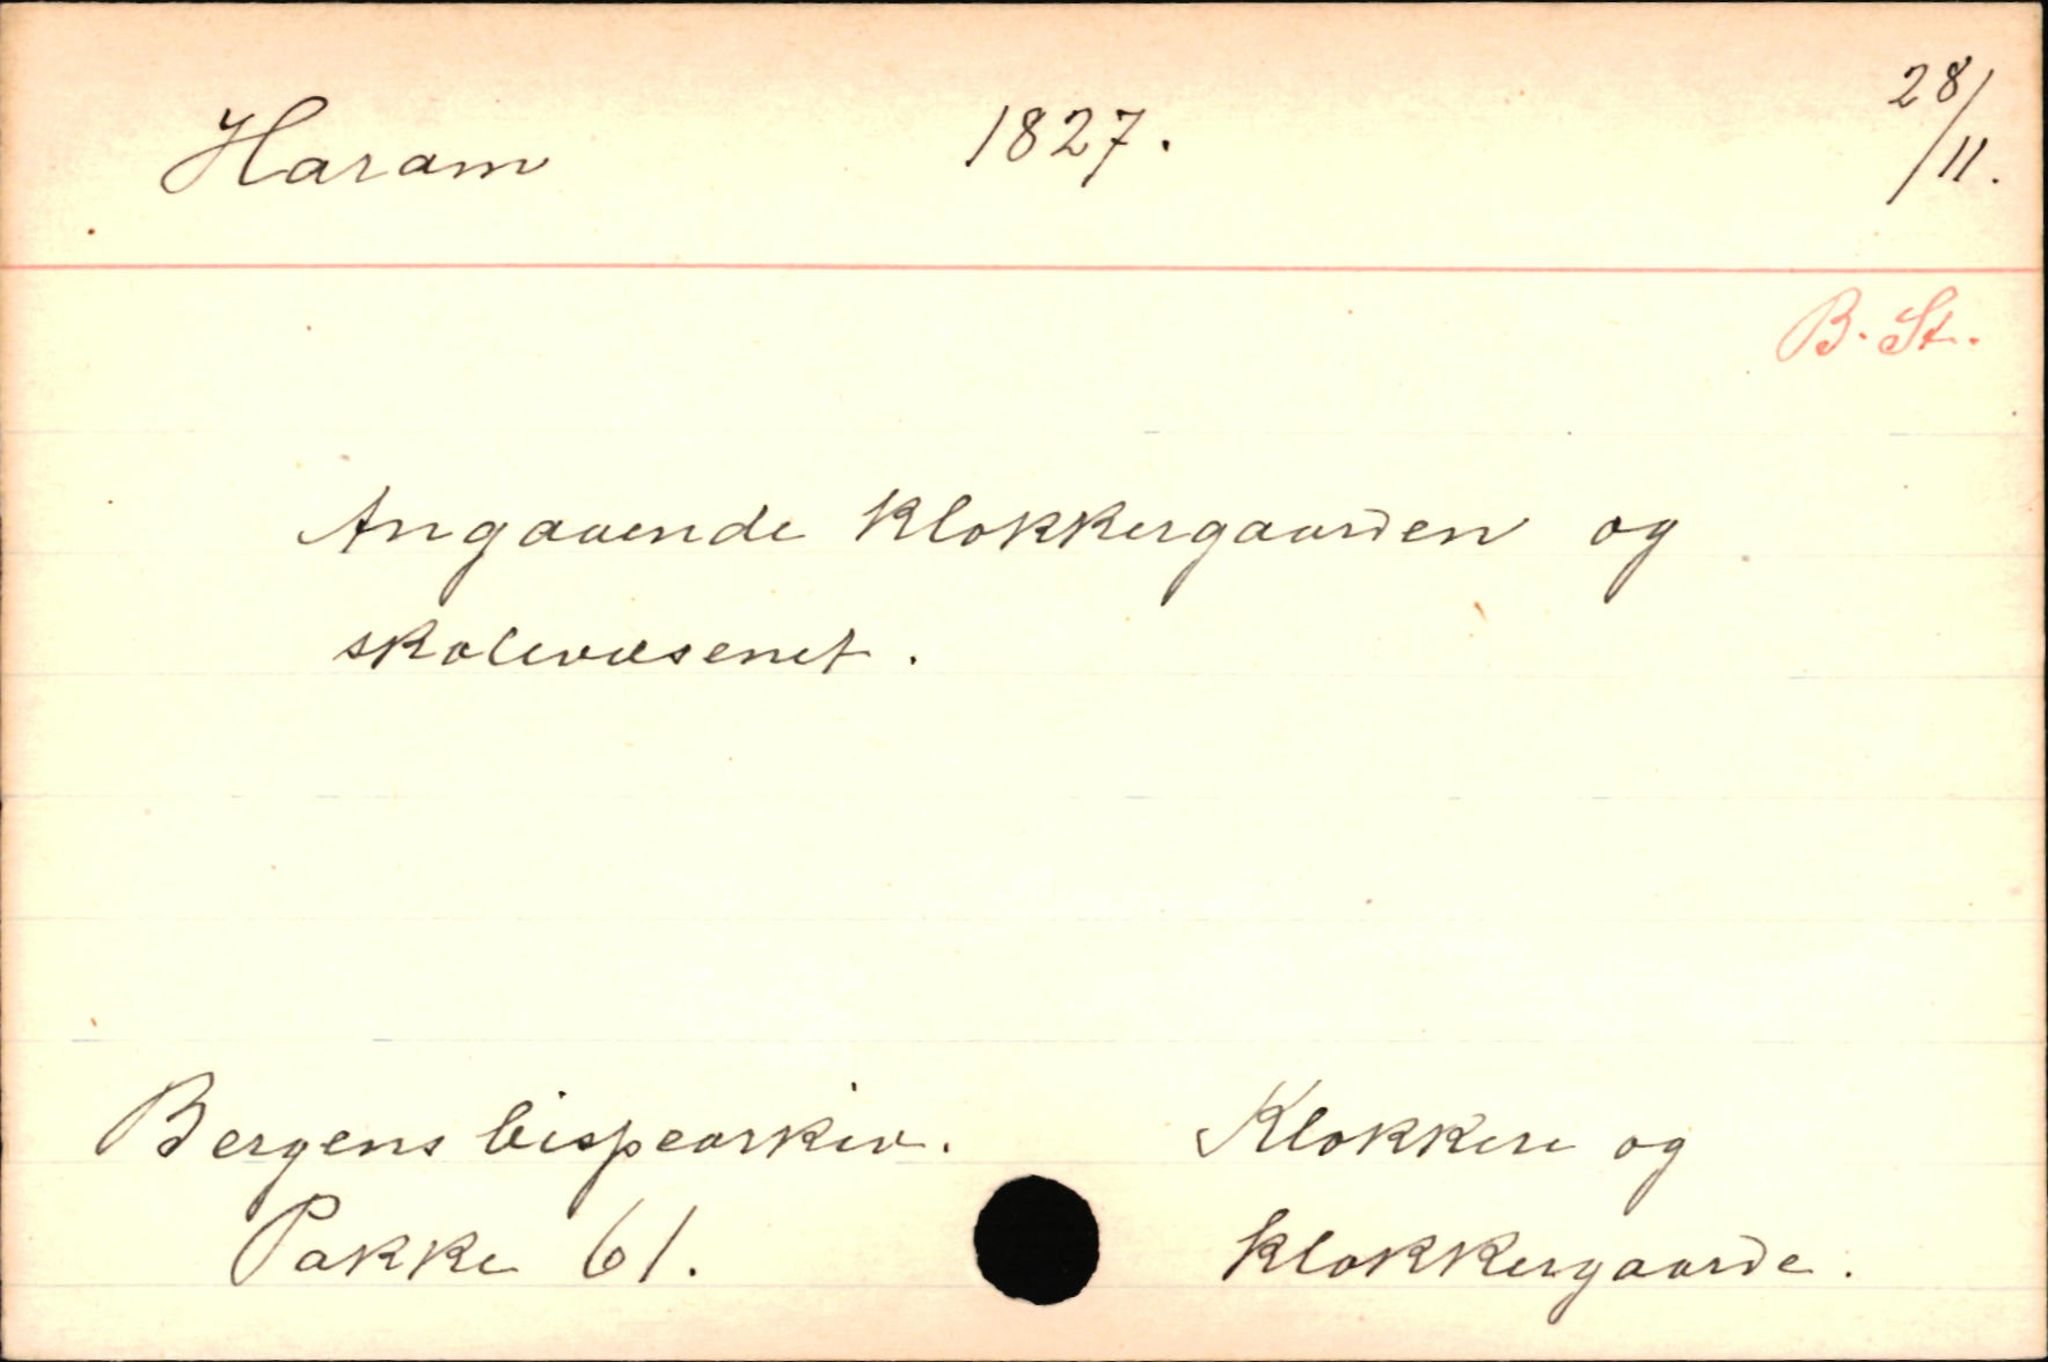 Haram 1827. 28/11.
B. St.
Angaaende klokkergaarden og
skolevæsenet.
Bergens bispearkiv. Klokkere og
Pakke 61. klokkergaarde.